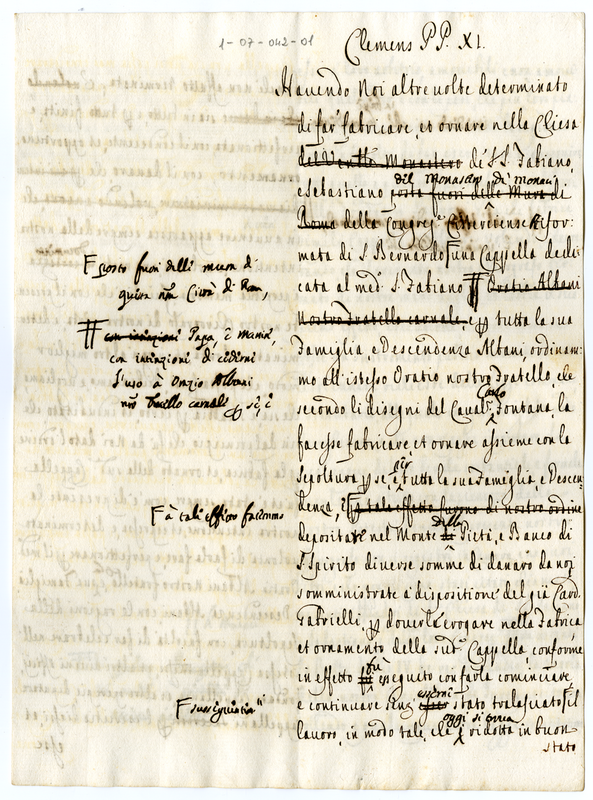 1-07-042-01
Clemens P P. XI.
Havendo Noi altre volte determinato
di far fabricare, et ornare nella Chiesa
Monastero de' S S. Fabiano,
del Monastero di monaci
e Sebastiano posta fuori delle Mura di
Roma della Congreg.e Cisterciense Rifor:
mata di S. Bernardo una Cappella dedi
cata al med.o S. Fabiano Oratio Albani
nostro fratello carnale e p tutta la sua
Famiglia, e Descendenza Albani, ordinam:
mo all'istesso Oratio nostro Fratello, che
Carlo
secondo li disegni del Caval.r Fontana, la
facesse fabricare, et ornare assieme con la
per
sepoltura p se, e tutta la sua Famiglia, e Descen:
denza, e a tale effetto furono di nostro ordine
della
depositate nel Monte Pietà, e Banco di
S. Spirito diverse somme di danaro da noi
somministrate a' dispositione del già Card.
Gabrielli, p doverle erogare nella Fabrica
et ornamento della sud.a Cappella, conforme
fù
in effetto eseguito con farla cominciare,
essersi
e continuare senz' stato tralasciato il
oggi si trova
lavoro, in modo tale, che ridotta in buon
stato
F posto fuori delle mura di
questa nra Città di Roma,
con intenzioni Papa,
con intenzioni di cederne
l'uso à Orazio Albani
nro fratello carnale p se, e
F à tale effetto facemmo
F